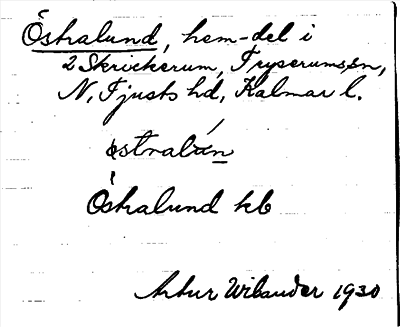 Östralund, hem-del i
2 Skrickerum, Tryserums sn,
N. Tjusts hd, Kalmar l.
östralún
Östralund kb
Artur Wilander 1930